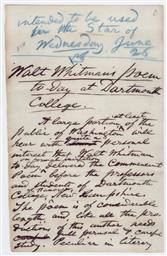 intended to be used
for the Star of
Wednesday June
26
Walt Whitman's Poem
to-Day at Dartmouth
College.
A large portion of the
public of Washington will
hear with personal
interest that Walt Whitman
to day delivers the Commencement
Poem before the professors
and students of Dartmouth
College, New Hampshire.
The Poem is of considerable
length, and like all the pro-
ductions of this author needs
full perusal &
study. Peculiar in literary